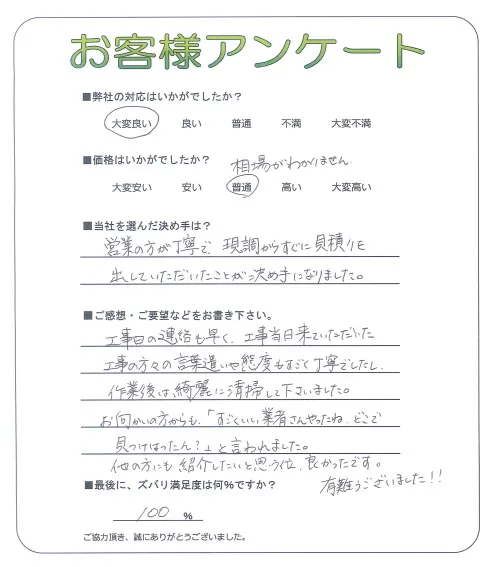 お客様アンケート
■弊社の対応はいかがでしたか？
大変良い 良い 普通 不満 大変不満
■価格はいかがでしたか？ 相場がわかりません
大変安い 安い 普通 高い 大変高い
■当社を選んだ決め手は？
営業の方が丁寧で、現調からすぐに見積りを
出していただいたことが決め手になりました。
■ご感想・ご要望などをお書き下さい。
工事日の連絡も早く、工事当日来ていただいた
工事の方々の言葉遣いや態度もすごく丁寧でしたし、
作業後は綺麗に清掃して下さいました。
お向かいの方からも、「すごくいい業者さんやったね、どこで
見つけはったん？」と言われました。
他の方にも紹介したいと思う位、良かったです。
有難うございました！！
■最後に、ズバリ満足度は何％ですか？
100 %
ご協力頂き、誠にありがとうございました。